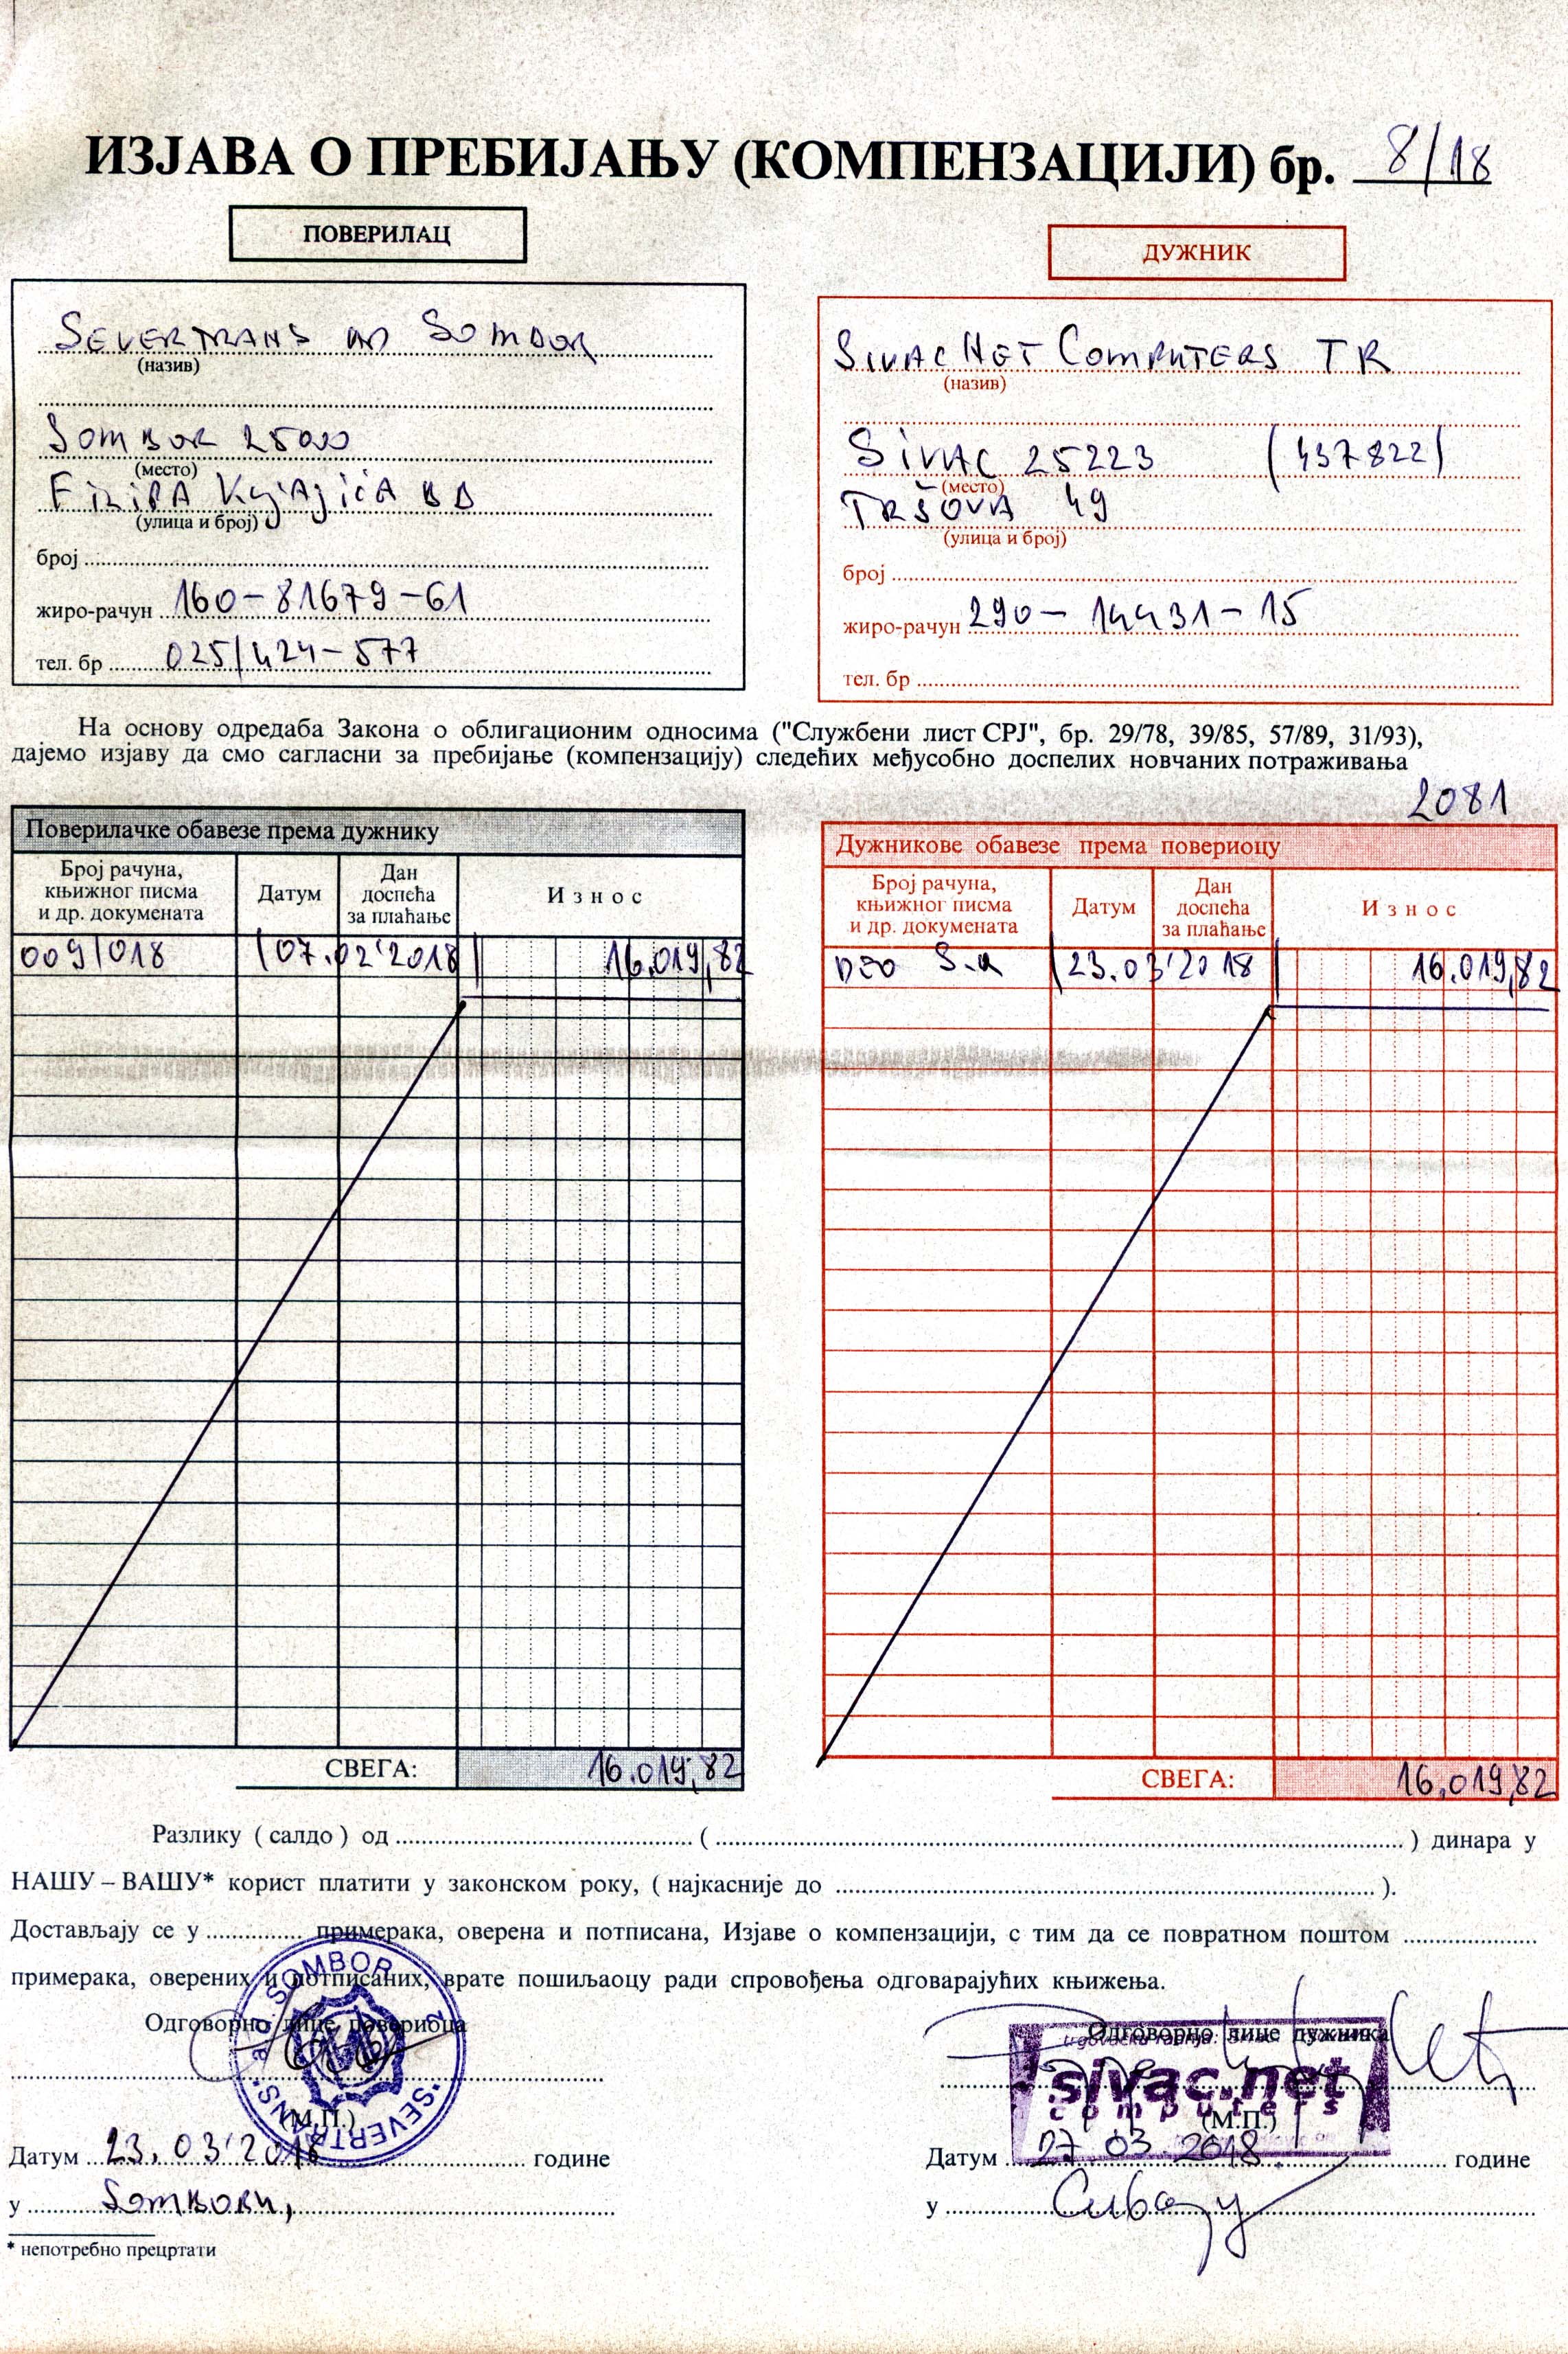 ИЗЈАВА О ПРЕБИЈАЊУ (КОМПЕНЗАЦИЈИ) бр. 8/18
ПОВЕРИЛАЦ
SEVERTRANS AD SOMBOR
(назив)
SOMBOR 25000
(место)
FILIPA KLJAJIĆA BB
(улица и број)
број
жиро-рачун 160-81679-61
тел. бр 025/424-577
ДУЖНИК
SIVAC NET COMPUTERS TR
(назив)
SIVAC 25223 (437822)
(место)
TRŠOVA 49
(улица и број)
број
жиро-рачун 290-14431-15
тел. бр
На основу одредаба Закона о облигационим односима ("Службени лист СРЈ", бр. 29/78, 39/85, 57/89, 31/93),
дајемо изјаву да смо сагласни за пребијање (компензацију) следећих међусобно доспелих новчаних потраживања
2081
Поверилачке обавезе према дужнику
Број рачуна, књижног писма и др. докумената Датум Дан доспећа за плаћање Износ
009/018 07.02'2018 16.019,82
СВЕГА: 16.019,82
Дужникове обавезе према повериоцу
Број рачуна, књижног писма и др. докумената Датум Дан доспећа за плаћање Износ
DEO 23.03'2018 16.019,82
СВЕГА: 16.019,82
Разлику ( салдо ) од ( ) динара у
НАШУ – ВАШУ* корист платити у законском року, ( најкасније до ).
Достављају се у примерака, оверена и потписана, Изјаве о компензацији, с тим да се повратном поштом
примерака, оверених и потписаних, врате пошиљаоцу ради спровођења одговарајућих књижења.
Одговорно лице повериоца
a.d. SOMBOR
SEVERTRANS
(М.П.)
Датум 23.03'2018 године
у SOMBORU,
* непотребно прецртати
Одговорно лице дужника
sivac.net
computers
(М.П.)
Датум 27 03. 2018. године
у Сивацу